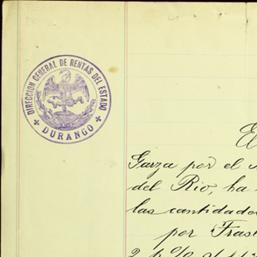 DIRECCION GENERAL DE RENTAS DEL ESTADO
DURANGO
El
Garza por el
del Rio, ha
las cantidado
por Tras
2 p%